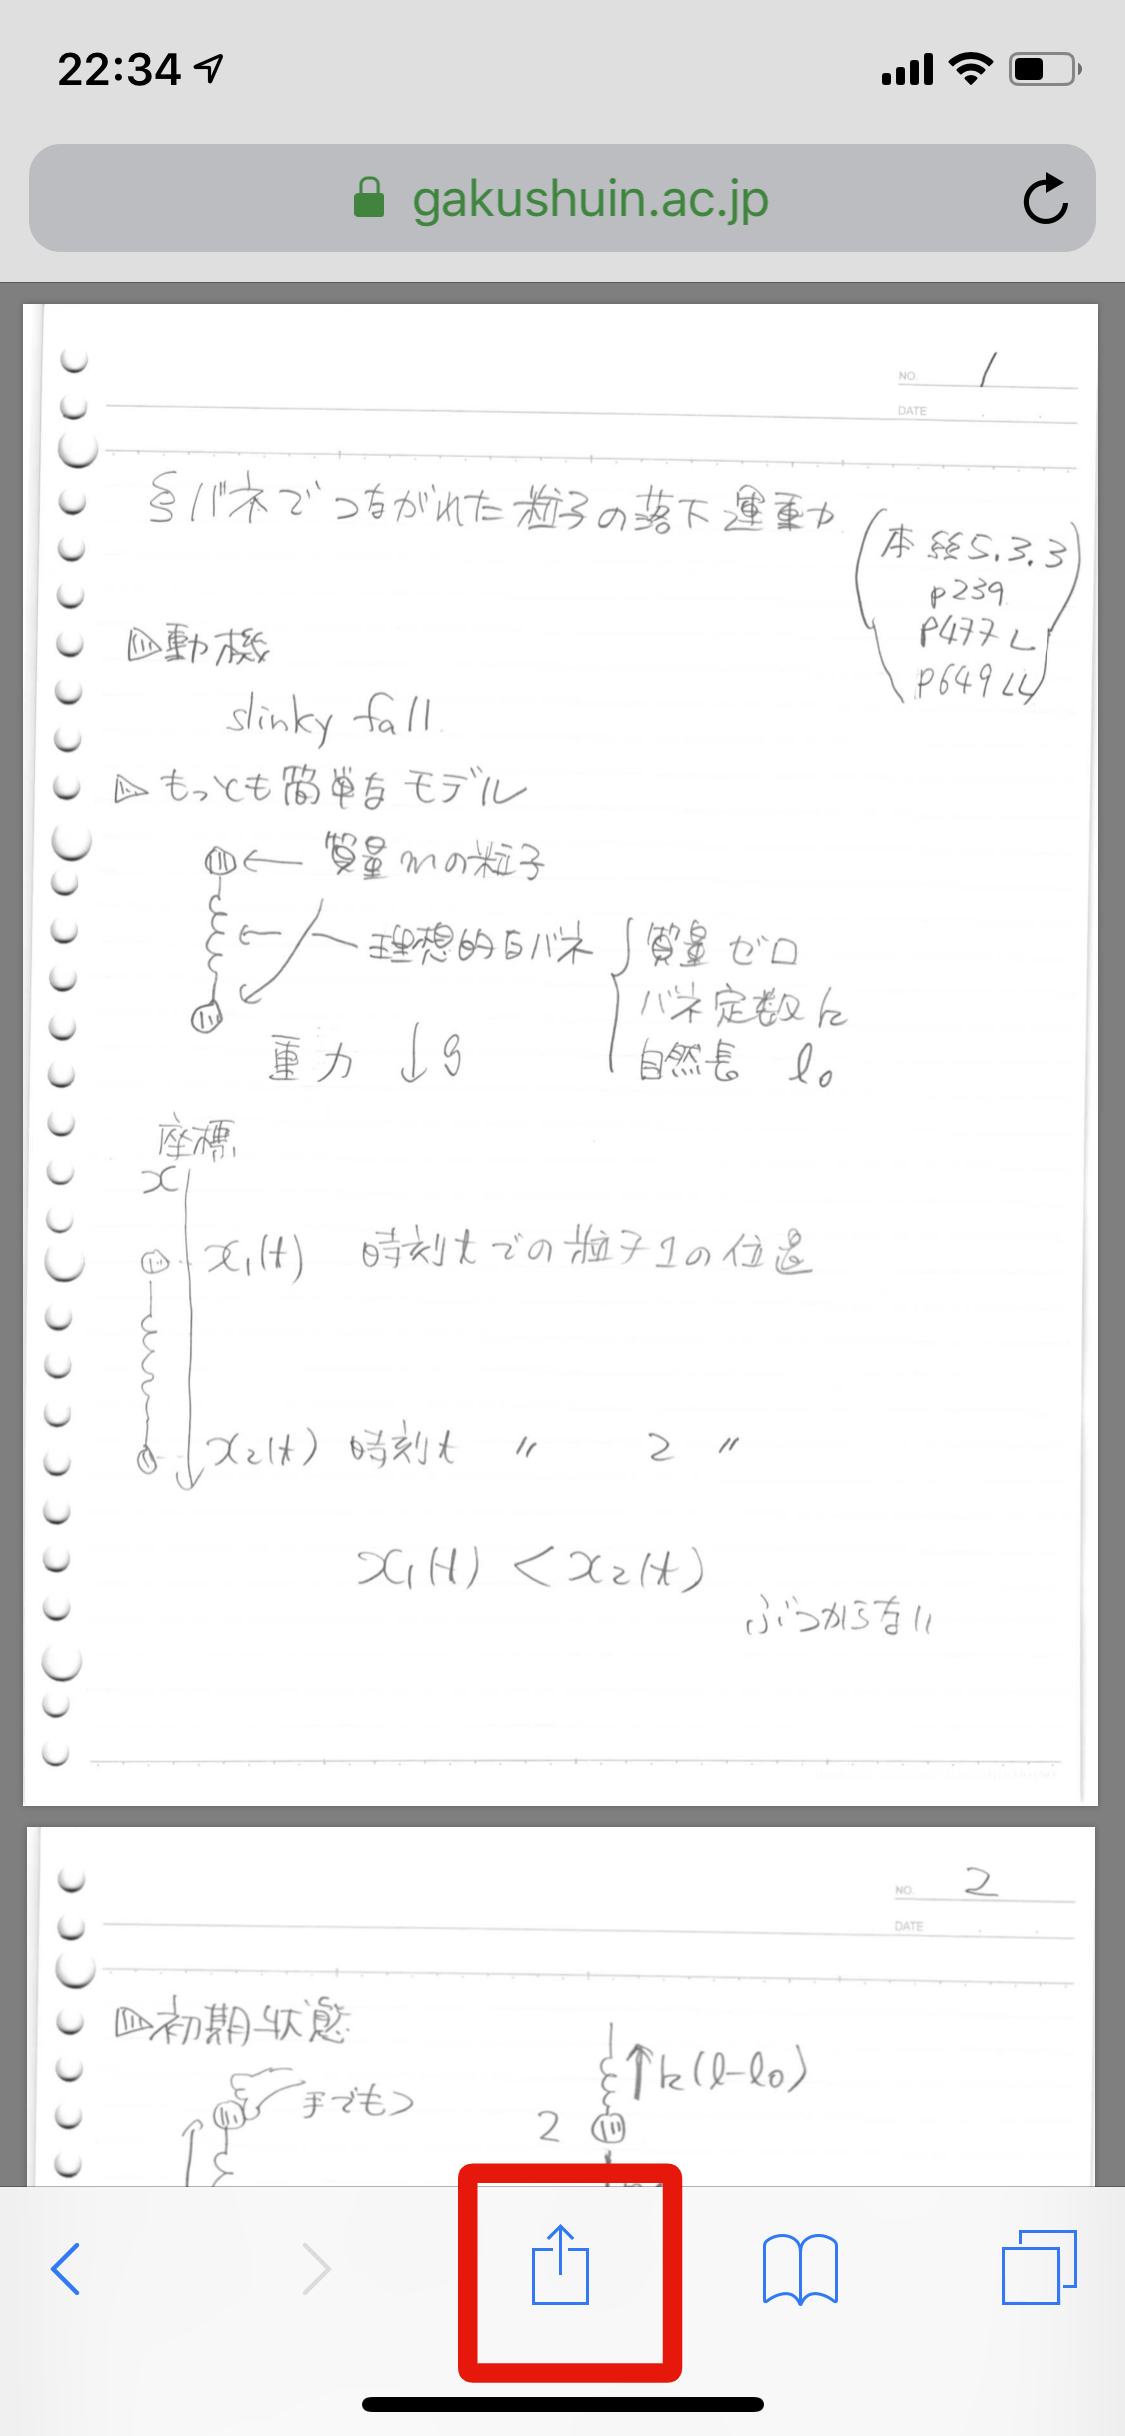 22:34
gakushuin.ac.jp
NO. 1
DATE
§バネでつながれた粒子の落下運動
(本 §§5.3.3
p239
P477 L
P649 LL)
動機
slinky fall.
もっとも簡単なモデル
質量mの粒子
理想的なバネ
質量 ゼロ
バネ定数 k
自然長 l₀
重力 ↓g
座標
x
x₁(t) 時刻tでの粒子1の位置
x₂(t) 時刻t 〃 2 〃
x₁(t) < x₂(t)
ぶつからない
NO. 2
DATE
初期状態
手でもつ
↑k(l-l₀)
2